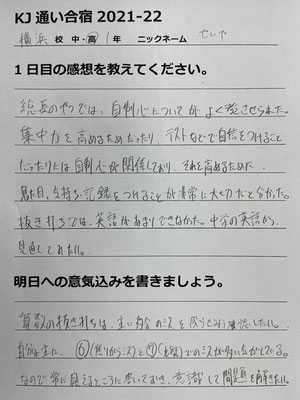 KJ 通い合宿 2021-22
横浜 校 中・高 1年 ニックネーム せいや
1日目の感想を教えてください。
総長のやつでは、自制心についてがよく
集中力を高めるためだったり、テストなどで自信をつけること
だったりには自制心が関係しており、それを高めるために、
見た目、気持ち、記録をつけることが非常に大切だと分かった。
抜き打ちでは、英語があまりできなかった。中学の英語から
見直してみたい。
明日への意気込みを書きましょう。
算数の抜き打ちは、主に のミスを 確認したい。
自分は主に、⑥(焦りからミス)と⑦ でのミスが多い気がしている。
なので常に見えるところに書いておき、意識して問題を解きたい。